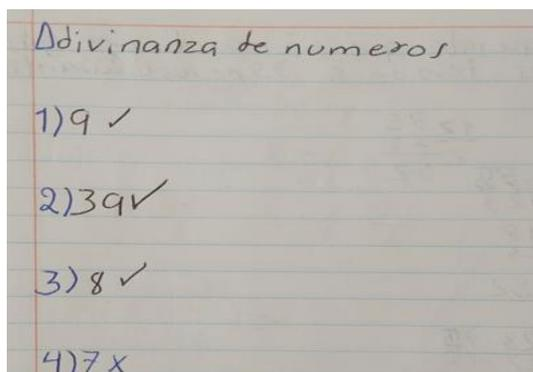 Adivinanza de numeros
1) 9 ✓
2) 39 ✓
3) 8 ✓
4) 7 x